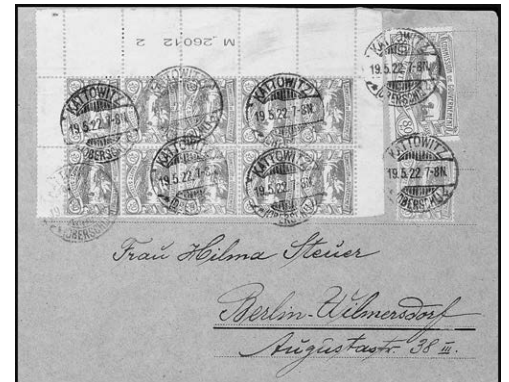 M 26012 2
KATTOWITZ
19.5.22.7-8N.
(OBERSCHL.)
KATTOWITZ
KATTOWITZ
19.5.22.7-8N.
(OBERSCHL.)
KATTOWITZ
19.5.22.7-8N.
(OBERSCHL.)
KATTOWITZ
19.5.22.7-8N.
(OBERSCHL.)
KATTOWITZ
19.5.22.7-8N.
(OBERSCHL.)
KATTOWITZ
19.5.22.7-8N.
(OBERSCHL.)
Frau Hilma Steuer
Berlin-Wilmersdorf
Augustastr. 38 III.